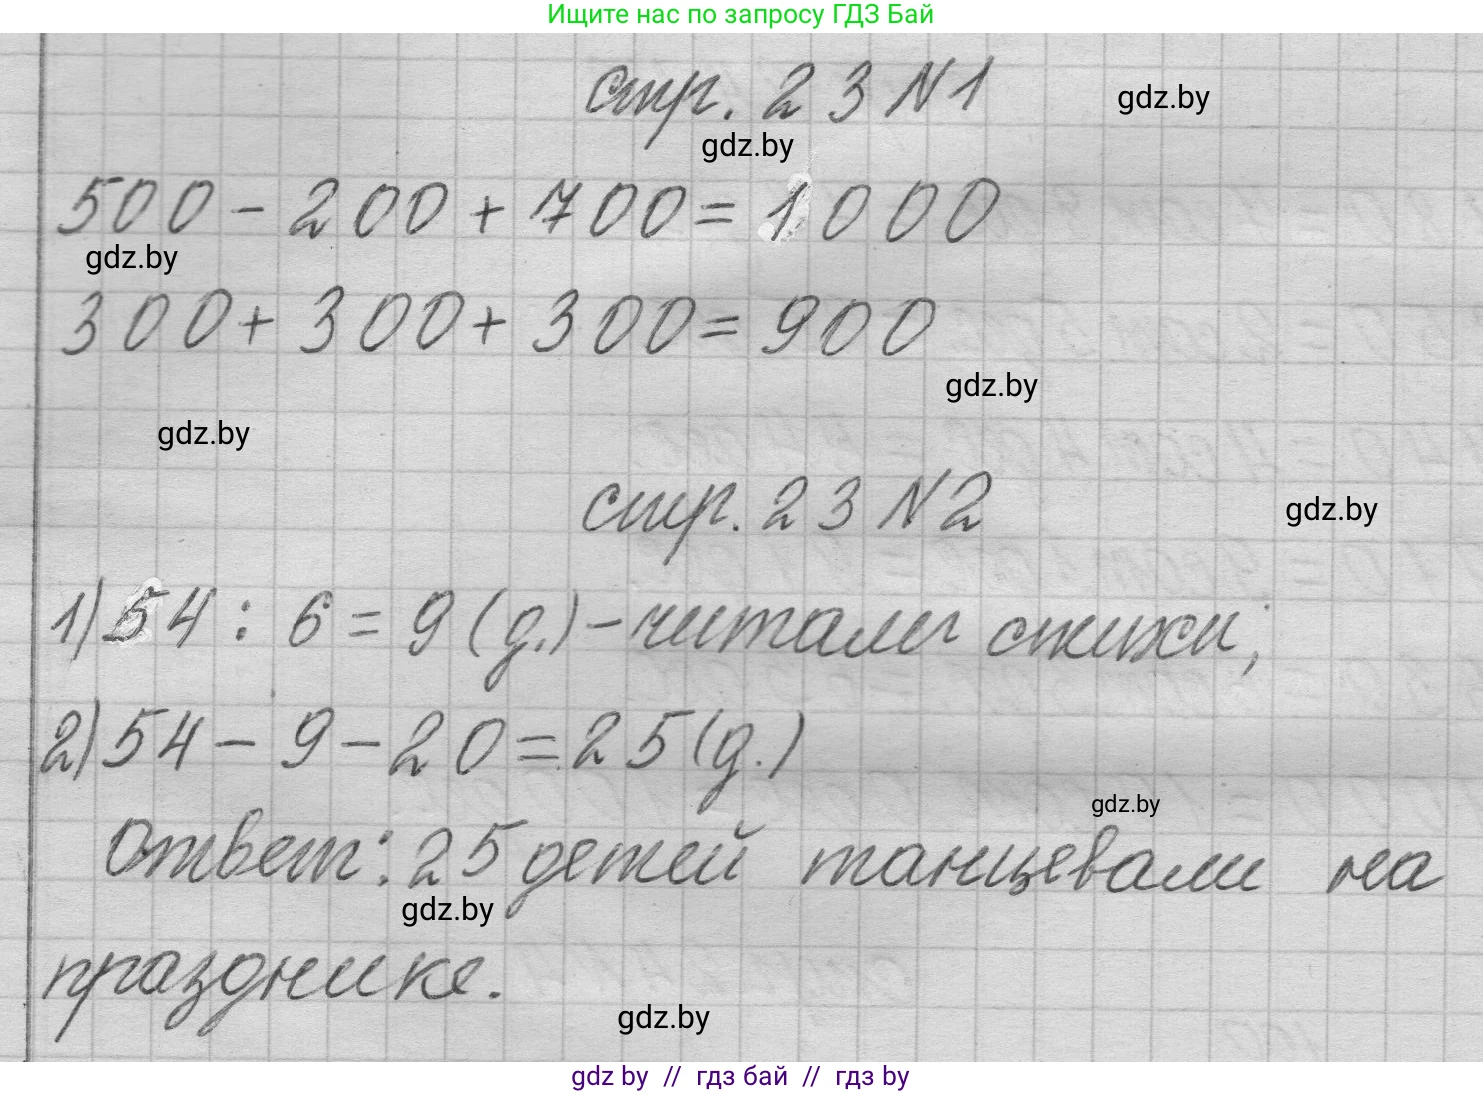 Ищите нас по запросу ГДЗ Бай
стр. 23 N1
gdz.by
gdz.by
500 - 200 + 700 = 1000
gdz.by
300 + 300 + 300 = 900
gdz.by
gdz.by
стр. 23 N2
gdz.by
1) 54 : 6 = 9 (д.) - читали стихи;
2) 54 - 9 - 20 = 25 (д.)
gdz.by
Ответ: 25 детей танцевали на
gdz.by
празднике.
gdz.by
gdz by // гдз бай // гдз by